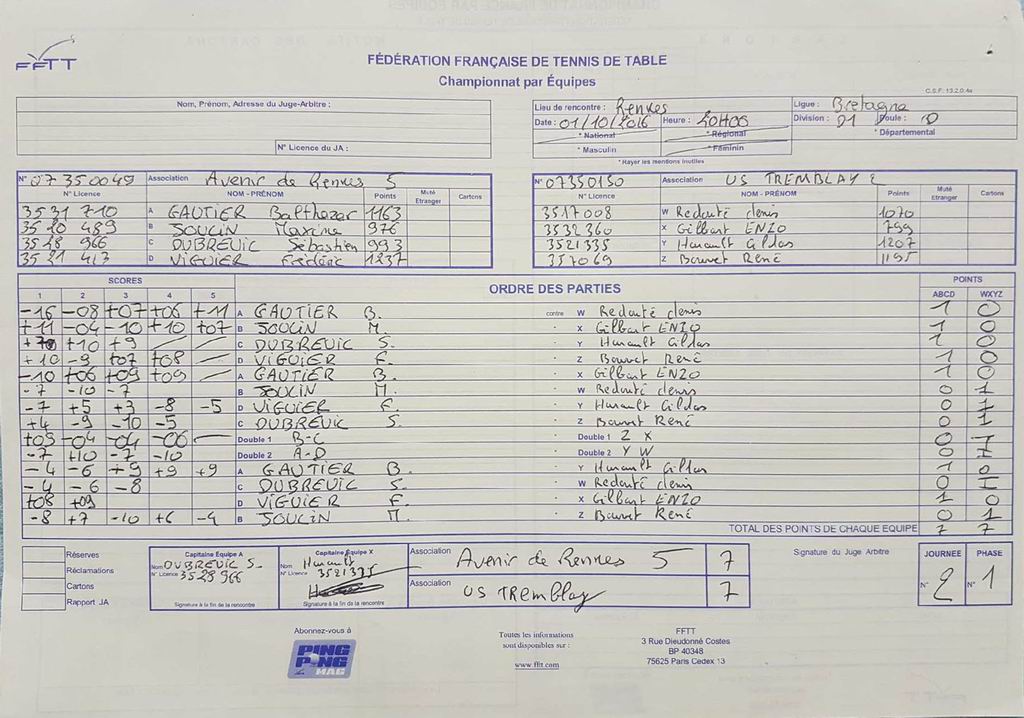 FFTT
FÉDÉRATION FRANÇAISE DE TENNIS DE TABLE
Championnat par Équipes
C.S.F. 13.2.0.4a
Nom, Prénom, Adresse du Juge-Arbitre :
N° Licence du JA :
Lieu de rencontre : Rennes
Ligue : Bretagne
Date : 01/10/2016 Heure : 20H00 Division : D1 Poule : D
* National * Régional * Départemental
* Masculin * Féminin
* Rayer les mentions inutiles
N° 07350049 Association Avenir de Rennes 5
N° Licence NOM - PRÉNOM Points Muté Etranger Cartons
3531 710 A GAUTIER Balthazar 1163
35 20 489 B JOULIN Maxime 976
35 28 966 C DUBREUIL Sébastien 993
35 21 413 D VIGUIER Frédéric 1237
N° 07350150 Association US TREMBLAY 2
N° Licence NOM - PRÉNOM Points Muté Etranger Cartons
3517008 W Redouté denis 1070
3532360 X Gilbart ENZO 799
3521335 Y Hurault Gildas 1207
357069 Z Bouvet René 1195
SCORES ORDRE DES PARTIES POINTS
1 2 3 4 5 ABCD WXYZ
-16 -08 +07 +06 +11 A GAUTIER B. contre W Redouté denis 1 0
+11 -04 -10 +10 +07 B JOULIN M. X Gilbart ENZO 1 0
+10 +9 C DUBREUIL S. Y Hurault Gildas 1 0
+10 -9 +07 +08 D VIGUIER F. Z Bouvet René 1 0
-10 +06 +09 +09 A GAUTIER B. X Gilbart ENZO 1 0
-7 -10 -7 B JOULIN M. W Redouté denis 0 1
-7 +5 +3 -8 -5 D VIGUIER F. Y Hurault Gildas 0 1
+4 -9 -10 -5 C DUBREUIL S. Z Bouvet René 0 1
+09 -04 -04 -06 Double 1 B-C Double 1 Z X 0 1
-7 +10 -7 -10 Double 2 A-D Double 2 Y W 0 1
-4 -6 +9 +9 +9 A GAUTIER B. Y Hurault Gildas 1 0
-4 -6 -8 C DUBREUIL S. W Redouté denis 0 1
+08 +09 D VIGUIER F. X Gilbart ENZO 1 0
-8 +7 -10 +6 -4 B JOULIN M. Z Bouvet René 0 1
TOTAL DES POINTS DE CHAQUE EQUIPE 7 7
Réserves
Réclamations
Cartons
Rapport JA
Capitaine Equipe A
Nom DUBREUIL S.
N° Licence 3528966
Signature à la fin de la rencontre
Capitaine Equipe X
Nom Hurault
N° Licence 3521335
Signature à la fin de la rencontre
Association Avenir de Rennes 5 7
Association US TRemblay 7
Signature du Juge Arbitre
JOURNEE PHASE
N° 2 N° 1
Abonnez-vous à
PING PONG MAG
Toutes les informations
sont disponibles sur :
www.fftt.com
FFTT
3 Rue Dieudonné Costes
BP 40348
75625 Paris Cedex 13